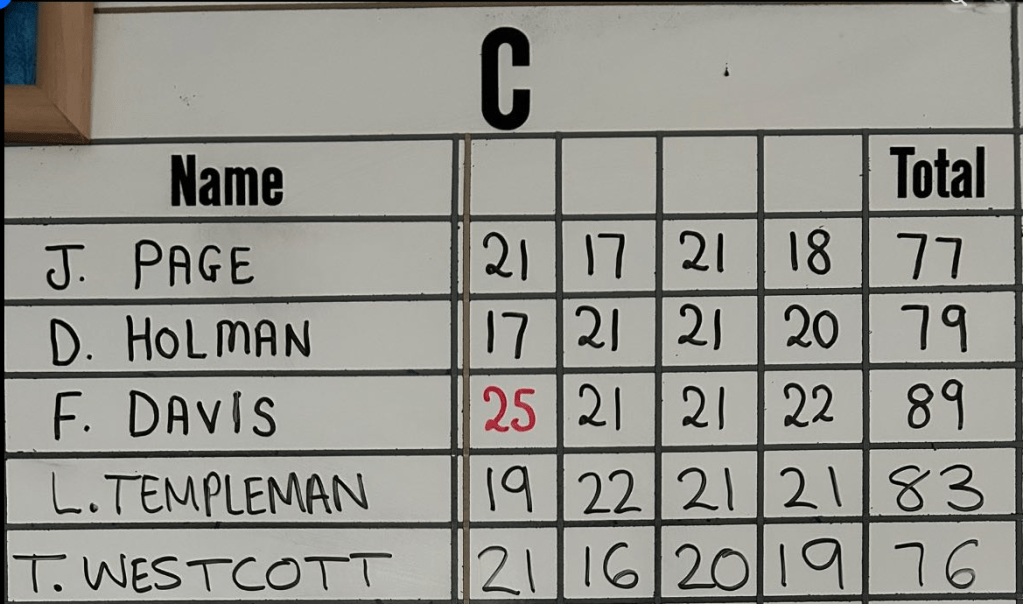 C
Name Total
J. PAGE 21 17 21 18 77
D. HOLMAN 17 21 21 20 79
F. DAVIS 25 21 21 22 89
L. TEMPLEMAN 19 22 21 21 83
T. WESTCOTT 21 16 20 19 76